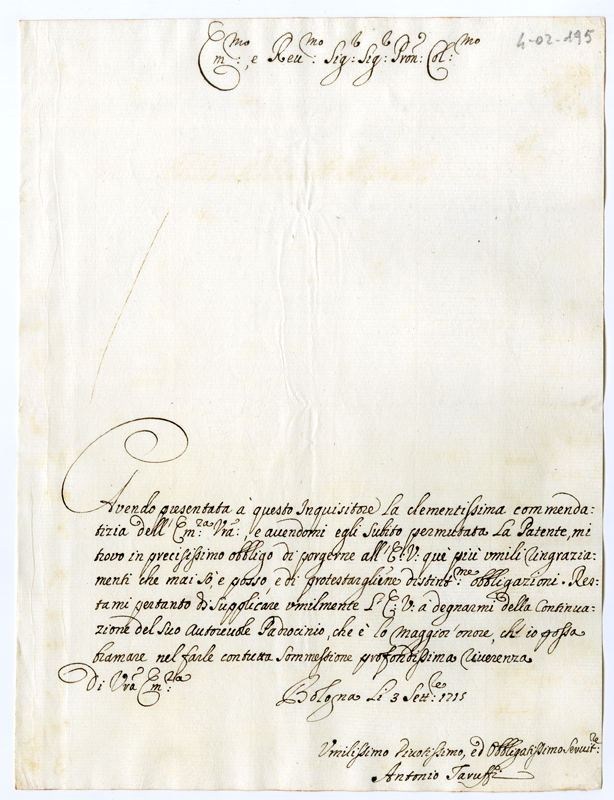 4-02-195
Em:mo, e Reu:mo Sig:r Sig:r Pron: Col:mo
Avendo presentata à questo Inquisitore la clementissima commenda-
tizia dell' Em:za Vra:, e avendomi egli subito permutata la Patente, mi
trovo in precisissimo obbligo di porgerne all' E:V: que' più umili ringrazia-
menti che mai sò, e posso, e di protestargliene distint:me obbligazioni. Res-
tami pertanto di supplicare umilmente l' E:V: à degnarmi della continua-
zione del suo Autorevole Padrocinio, che è lo maggior' onore, ch' io possa
bramare nel farle con tutta sommessione profondissima riverenza
Di Vra Em:za
Bologna li 3 Sett:re 1715
Umilissimo Divotissimo, ed Obbligatissimo Servit:re
Antonio Taruffi